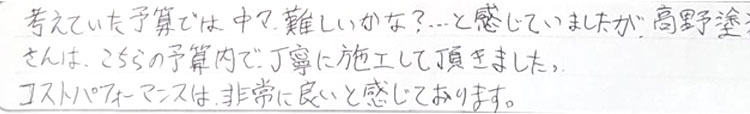 考えていた予算では中々難しいかな?…と感じていましたが、高野塗
さんは、こちらの予算内で、丁寧に施工して頂きました。
コストパフォーマンスは、非常に良いと感じております。